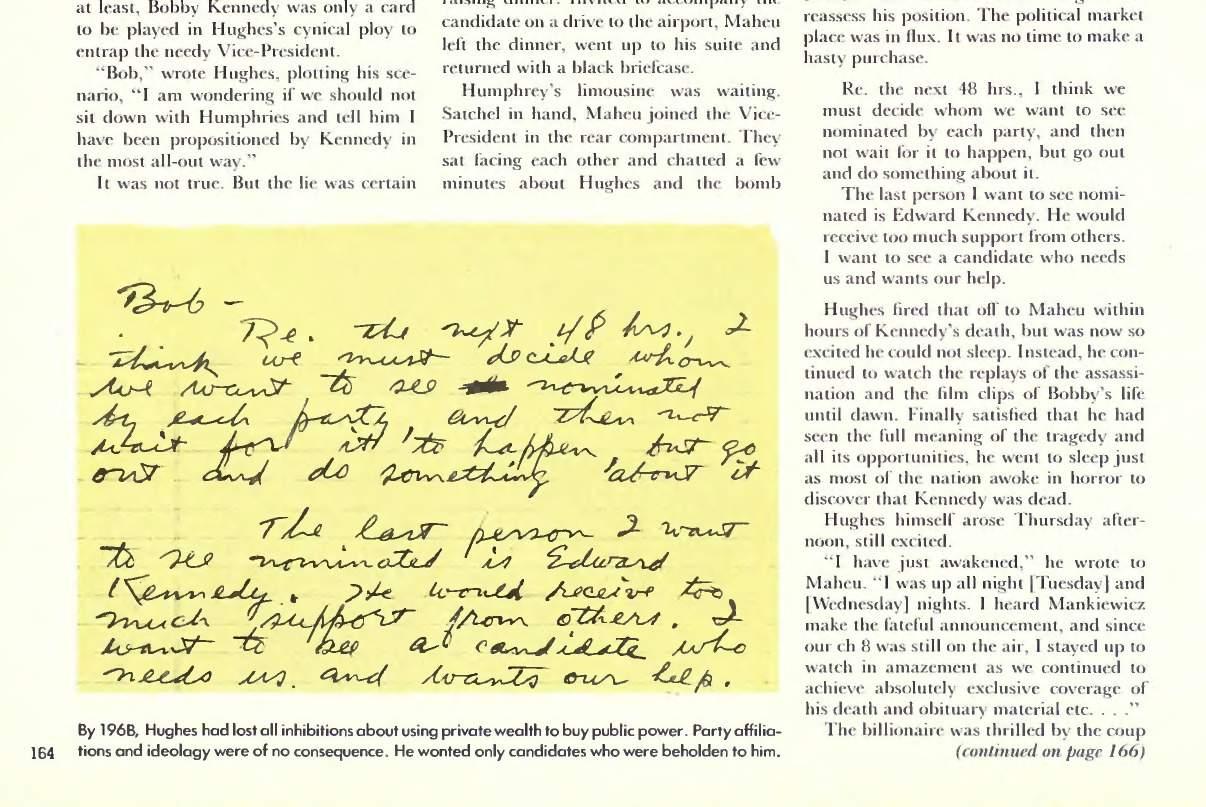 at least, Bobby Kennedy was only a card
to be played in Hughes's cynical ploy to
entrap the needy Vice-President.
"Bob," wrote Hughes, plotting his sce-
nario, "I am wondering if we should not
sit down with Humphries and tell him I
have been propositioned by Kennedy in
the most all-out way."
It was not true. But the lie was certain
candidate on a drive to the airport, Maheu
left the dinner, went up to his suite and
returned with a black briefcase.
Humphrey's limousine was waiting.
Satchel in hand, Maheu joined the Vice-
President in the rear compartment. They
sat facing each other and chatted a few
minutes about Hughes and the bomb
Bob –
Re. the next 48 hrs., I
think we must decide whom
we want to see nominated
by each party, and then not
wait for it to happen, but go
out and do something about it
The last person I want
to see nominated is Edward
Kennedy. He would receive too
much support from others. I
want to see a candidate who
needs us and wants our help.
By 196B, Hughes had lost all inhibitions about using private wealth to buy public power. Party affilia-
tions and ideology were of no consequence. He wonted only candidates who were beholden to him.
164
reassess his position. The political market
place was in flux. It was no time to make a
hasty purchase.
Re. the next 48 hrs., I think we
must decide whom we want to see
nominated by each party, and then
not wait for it to happen, but go out
and do something about it.
The last person I want to see nomi-
nated is Edward Kennedy. He would
receive too much support from others.
I want to see a candidate who needs
us and wants our help.
Hughes fired that off to Maheu within
hours of Kennedy's death, but was now so
excited he could not sleep. Instead, he con-
tinued to watch the replays of the assassi-
nation and the film clips of Bobby's life
until dawn. Finally satisfied that he had
seen the full meaning of the tragedy and
all its opportunities, he went to sleep just
as most of the nation awoke in horror to
discover that Kennedy was dead.
Hughes himself arose Thursday after-
noon, still excited.
"I have just awakened," he wrote to
Maheu. "I was up all night [Tuesday] and
[Wednesday] nights. I heard Mankiewicz
make the fateful announcement, and since
our ch 8 was still on the air, I stayed up to
watch in amazement as we continued to
achieve absolutely exclusive coverage of
his death and obituary material etc. . . ."
The billionaire was thrilled by the coup
(continued on page 166)